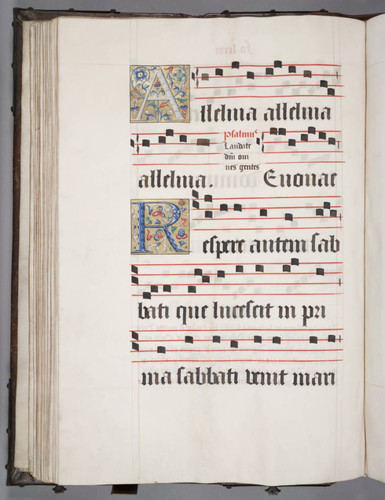 Alleluia alleluia
Psalmus
Laudate
dnm om
nes gentes
alleluia. Euouae
Respere autem sab
bati que lucescit in pri
ma sabbati venit mari